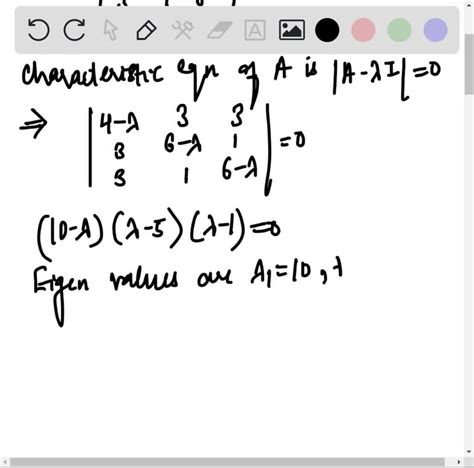 characteristic eqn of A is |A-λI|=0
⇒ |4-λ 3 3|
|3 6-λ 1| =0
|3 1 6-λ|
(10-λ)(λ-5)(λ-1)=0
Eigen values are λ₁=10,